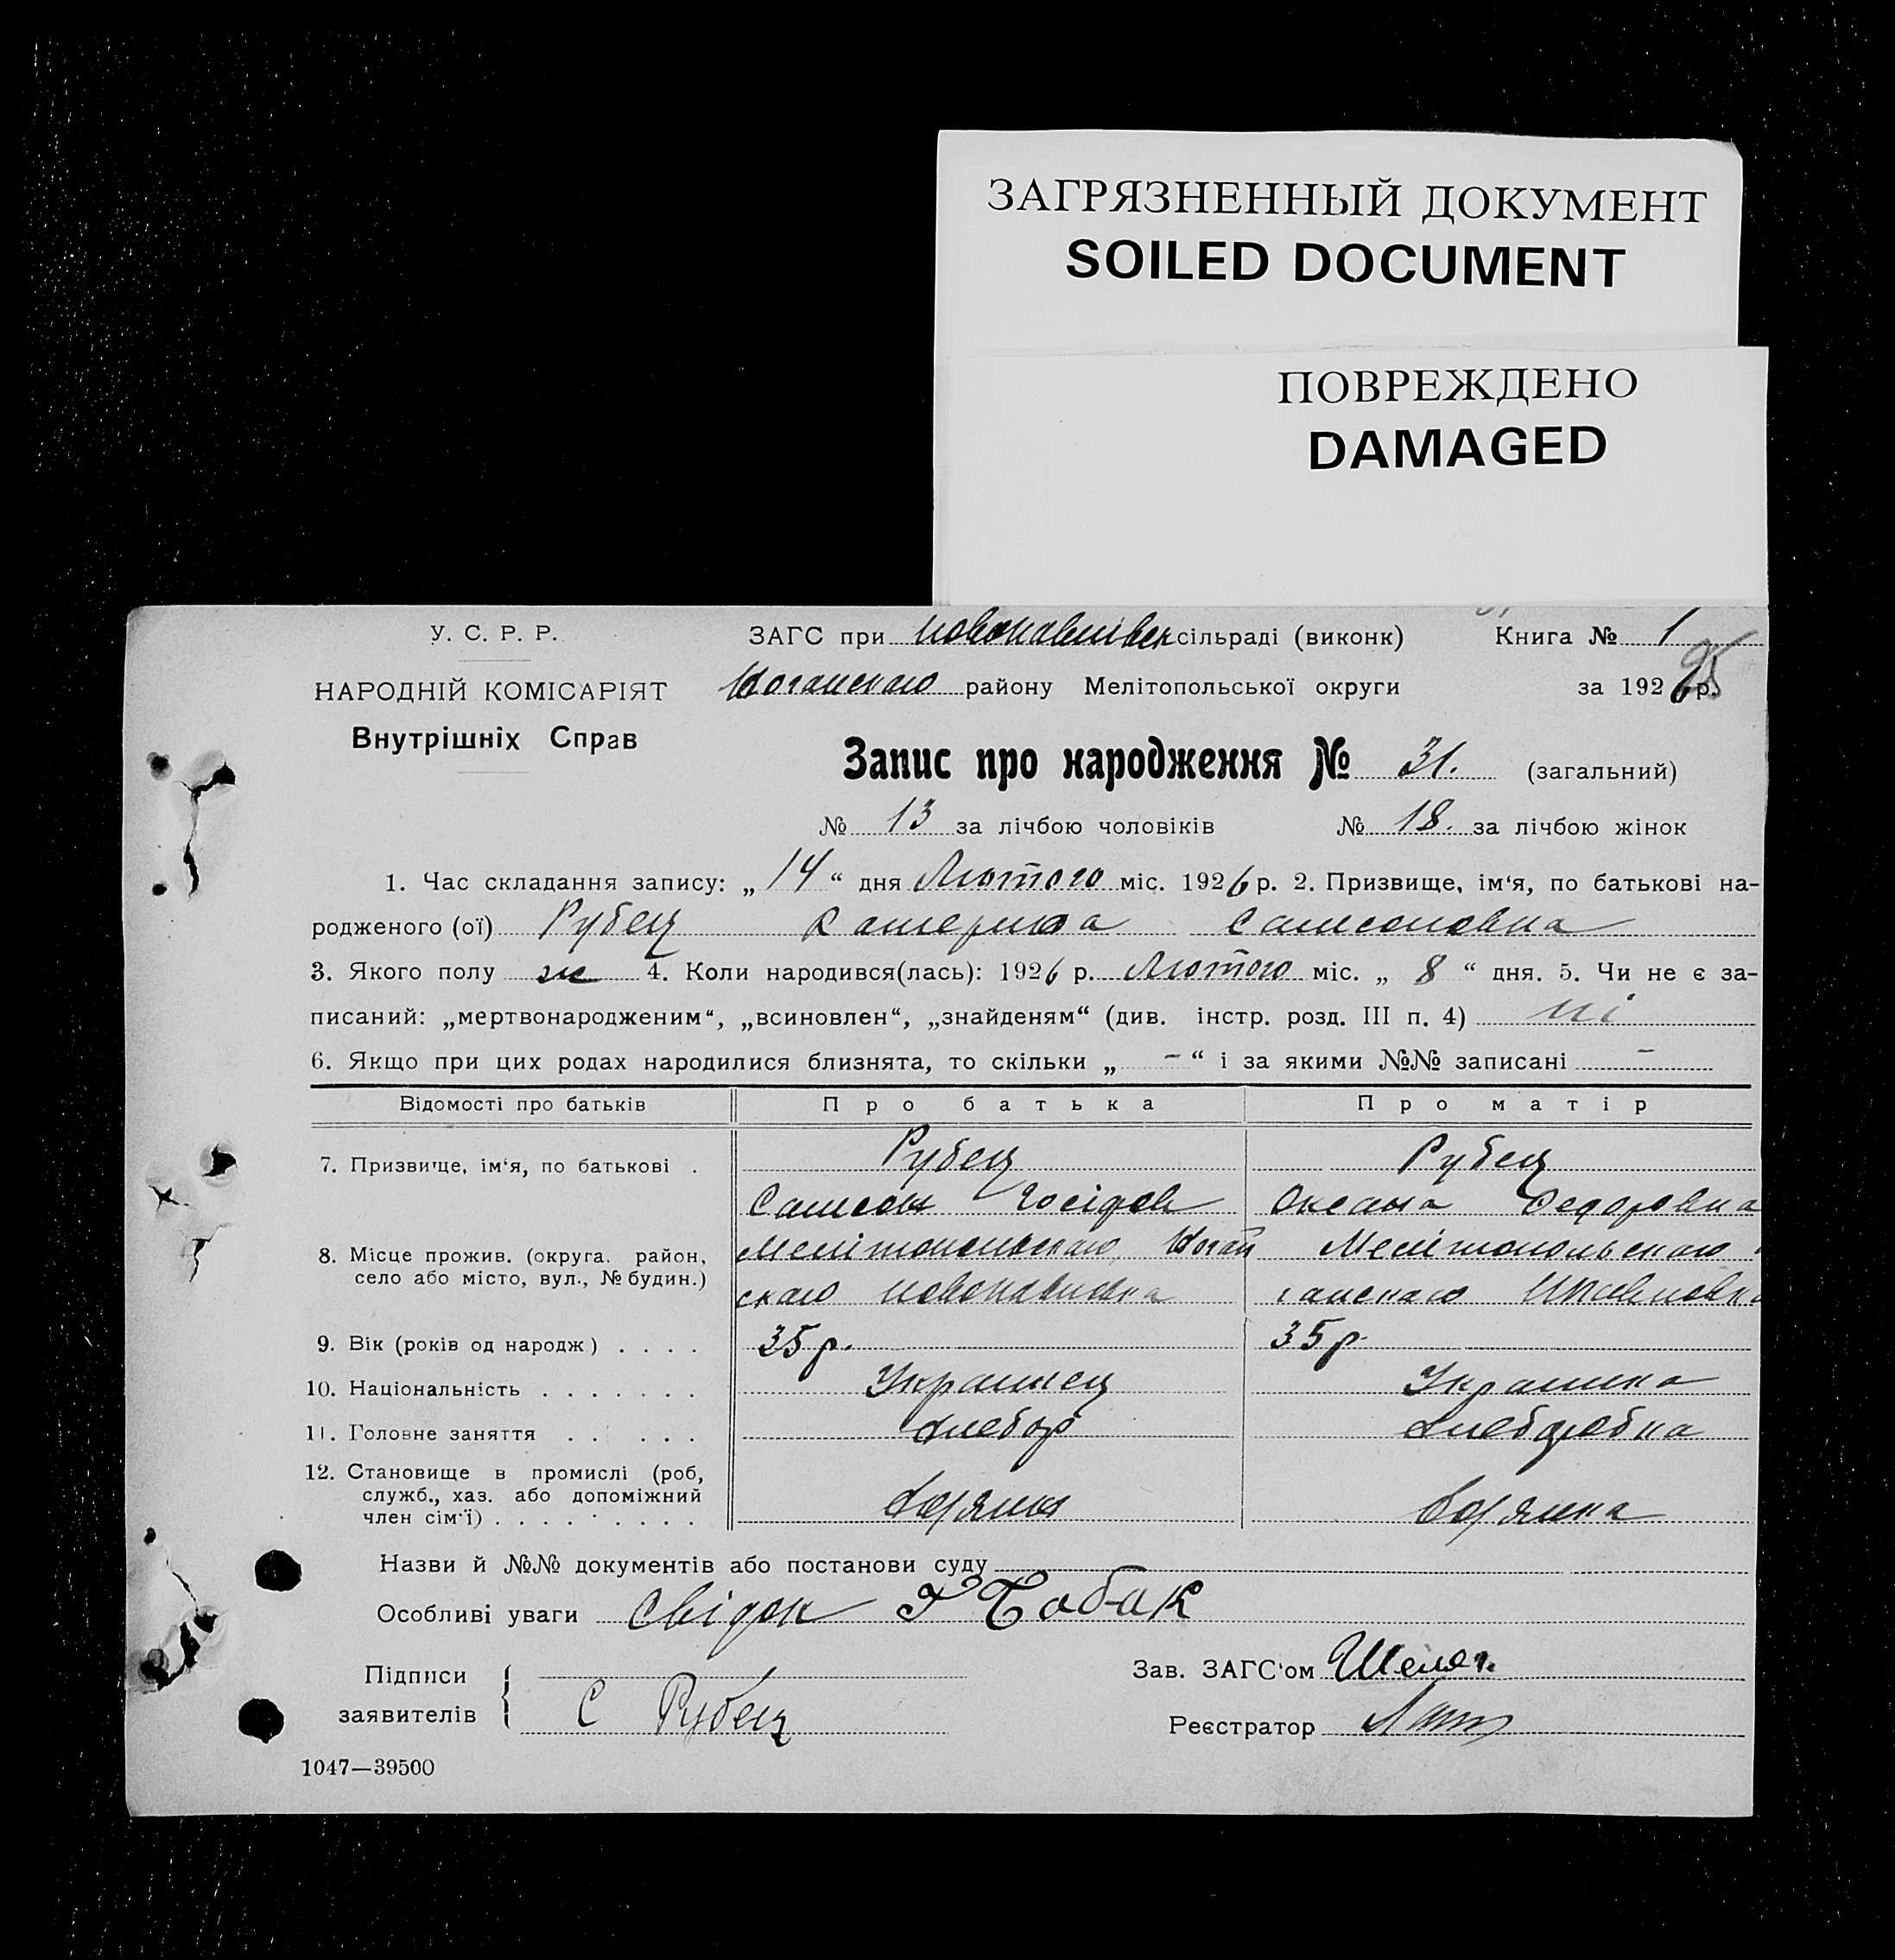 ЗАГРЯЗНЕННЫЙ ДОКУМЕНТ
SOILED DOCUMENT
ПОВРЕЖДЕНО
DAMAGED
У. С. Р. Р.
ЗАГС при сільраді (виконк) Книга № 1
25
НАРОДНІЙ КОМІСАРІЯТ
району Мелітопольської округи за 1926 р.
Внутрішніх Справ
Запис про народження № 31. (загальний)
№ 13 за лічбою чоловіків № 18. за лічбою жінок
1. Час складання запису: „ 14 “ дня Лютого міс. 1926 р. 2. Призвище, ім‘я, по батькові на-
родженого (ої) Рубец Катерина Самсоновна
3. Якого полу ж 4. Коли народився(лась): 1926 р. Лютого міс. „ 8 “ дня. 5. Чи не є за-
писаний: „мертвонародженим“, „всиновлен“, „знайденям“ (див. інстр. розд. III п. 4) ні
6. Якщо при цих родах народилися близнята, то скільки „ – “ і за якими №№ записані –
Відомості про батьків Про батька Про матір
7. Призвище, ім‘я, по батькові . Рубец Рубец
Самсон Оксана Федоровна
8. Місце прожив. (округа. район, Мелітопольскаго Ногай Мелітопольскаго
село або місто, вул., № будин.) скаго
9. Вік (років од народж) . . . . 35 р. 35 р.
10. Національність . . . . . . . Украинец Украинка
11. Головне заняття . . . . . Хлебор Хлебдробка
12. Становище в промислі (роб,
служб., хаз. або допоміжний
член сім‘ї) . . . . . . . . .
Назви й №№ документів або постанови суду
Особливі уваги Свідок Бабак
Підписи Зав. ЗАГС‘ом
заявителів С Рубец Реєстратор
1047—39500